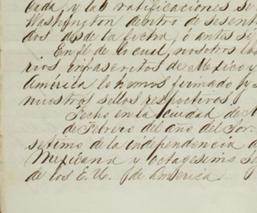 cida, y las ratificaciones se
Washington dentro de sesent
dos de la fecha, ó antes se
En fé de lo cual, nosotros los
rios infrascritos de México y
América lo hemos firmado y s
nuestros sellos respectivos
Fecho en la Ciudad de M
de Febrero del año del Sor.
setimo de la independencia d
Mexicana y octagesimo s
de los E. U. de América